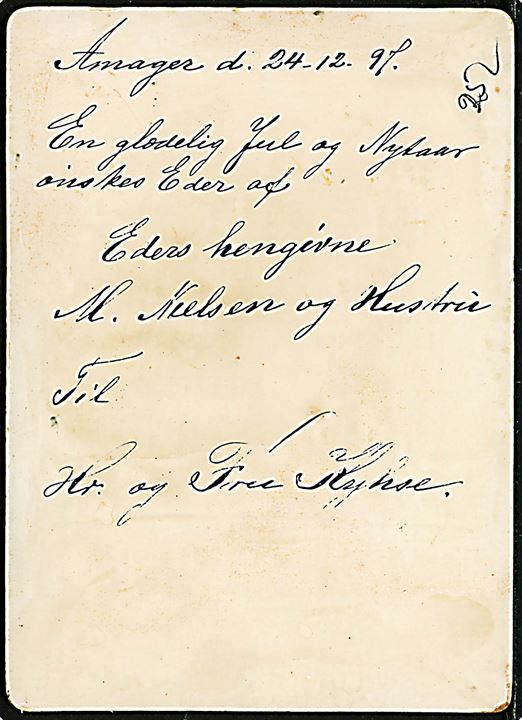 Amager d. 24-12-97.
252
En glædelig Jul og Nytaar
ønskes Eder af
Eders hengivne
M. Nielsen og Hustru
Til
Hr. og Fru